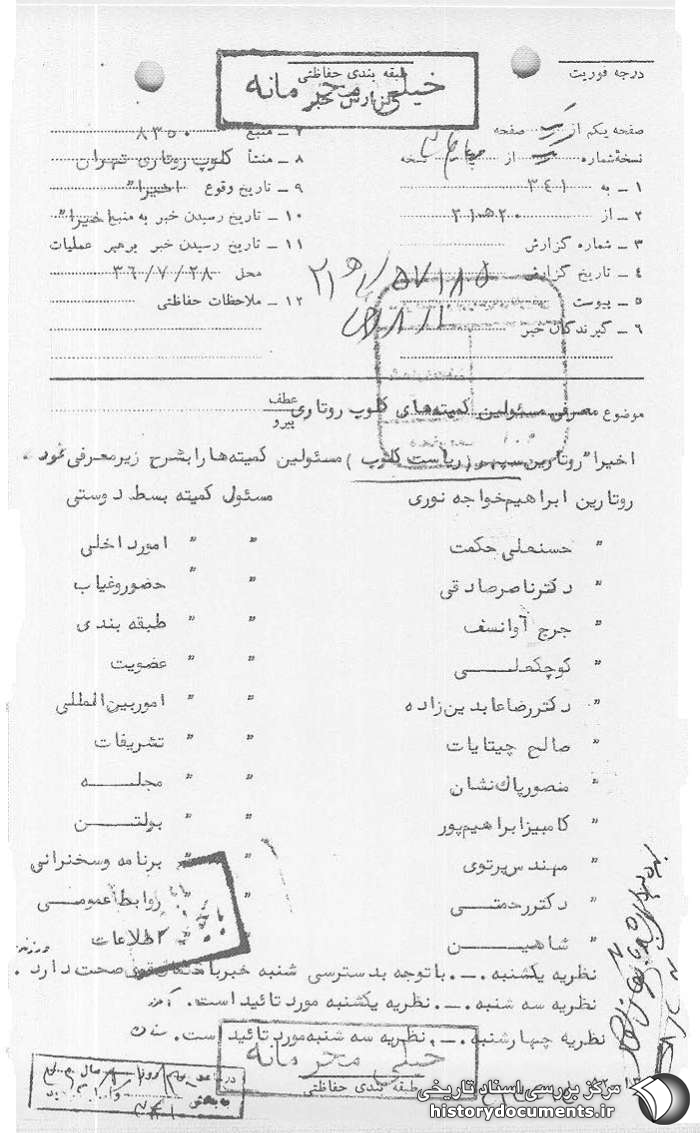 درجه فوریت
طبقه بندی حفاظتی
خیلی محرمانه
گزارش خبر
صفحه یکم از یک صفحه
نسخه شماره یک از چهار نسخه
۱ ـ به ۳۴۱
۲ ـ از ۲۰ ه ۲۱
۳ ـ شماره گزارش
۴ ـ تاریخ گزارش
۵ ـ پیوست
۶ ـ گیرندگان خبر
۷ ـ منبع ۸۳۵۰
۸ ـ منشأ کلوپ روتاری تهران
۹ ـ تاریخ وقوع اخیرا"
۱۰ ـ تاریخ رسیدن خبر به منبع اخیرا"
۱۱ ـ تاریخ رسیدن خبر برهبر عملیات
محل ۳۶/۷/۲۸
۱۲ ـ ملاحظات حفاظتی
موضوع معرفی مسئولین کمیته‌های کلوپ روتاری
عطف
پیرو
اخیرا" روتارین سپهر (ریاست کلوپ) مسئولین کمیته‌ها را بشرح زیر معرفی نمود
روتارین ابراهیم خواجه نوری مسئول کمیته بسط دوستی
" حسنعلی حکمت " " امور داخلی
" دکتر ناصر صادقی " " حضور و غیاب
" جرج آوانسف " " طبقه بندی
" کوچکعلی " " عضویت
" دکتر رضا عابدین زاده " " امور بین المللی
" صالح چیتایات " " تشریفات
" منصور پاک نشان " " مجله
" کامبیز ابراهیم پور " " بولتن
" مهندس پرتوی " " برنامه و سخنرانی
" دکتر رحمتی " " روابط عمومی
" شاهین " " اطلاعات
نظریه یکشنبه . ـ . با توجه بدسترسی شنبه خبر باحتمال قوی صحت دارد .
نظریه سه شنبه . ـ . نظریه یکشنبه مورد تائید است .
نظریه چهارشنبه . ـ . نظریه سه شنبه مورد تائید است .
خیلی محرمانه
طبقه بندی حفاظتی
مرکز بررسی اسناد تاریخی
historydocuments.ir